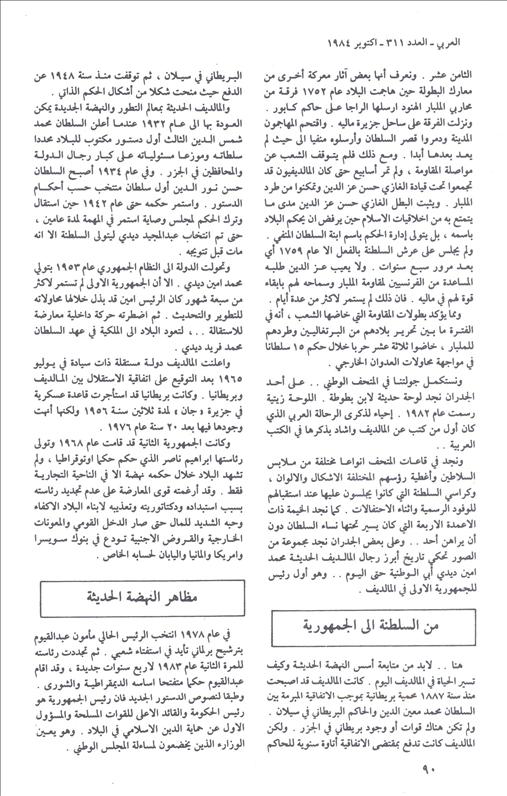 العربي - العدد ٣١١ - اكتوبر ١٩٨٤
الثامن عشر . ونعرف أنها بعض آثار معركة أخرى من
معارك البطولة حين هاجمت البلاد عام ١٧٥٢ فرقة من
محاربي المليبار الهنود ارسلها الراجا على حاكم كابور .
ونزلت الفرقة على ساحل جزيرة ماليه . واقتحم المهاجمون
المدينة ودمروا قصر السلطان وأرسلوه منفيا الى حيث لم
يعد بعدها أبدا . ومع ذلك فلم يتوقف الشعب عن
مواصلة المقاومة ، ولم تمر أسابيع حتى كان المالديفيون قد
تجمعوا تحت قيادة الغازي حسن عز الدين وتمكنوا من طرد
المليبار . ويثبت البطل الغازي حسن عز الدين مدى ما
يتمتع به من اخلاقيات الاسلام حين يرفض ان يحكم البلاد
باسمه ، بل يتولى إدارة الحكم باسم ابنة السلطان المنفي .
ولم يجلس على عرش السلطنة بالفعل الا عام ١٧٥٩ أي
بعد مرور سبع سنوات . ولا يعيب عز الدين طلبه
المساعدة من الفرنسيين لمقاومة المليبار وسماحه لهم بابقاء
قوة لهم في ماليه . فان ذلك لم يستمر لاكثر من عدة أيام .
ومما يؤكد بطولات المقاومة التي خاضها الشعب ، أنه في
الفترة ما بين تحرير بلادهم من البرتغاليين وطردهم
للمليبار ، خاضوا ثلاثة عشر حربا خلال حكم ١٥ سلطانا
في مواجهة محاولات العدوان الخارجي .
ونستكمل جولتنا في المتحف الوطني . . على أحد
الجدران نجد لوحة حديثة لابن بطوطة . اللوحة زيتية
رسمت عام ١٩٨٢ . إحياء لذكرى الرحالة العربي الذي
كان أول من كتب عن المالديف واشاد بذكرها في الكتب
العربية . .
ونجد في قاعات المتحف انواعا مختلفة من ملابس
السلاطين وأغطية رؤسهم المختلفة الاشكال والالوان ،
وكراسي السلطنة التي كانوا يجلسون عليها عند استقبالهم
للوفود الرسمية واثناء الاحتفالات . كما نجد الخيمة ذات
الاعمدة الاربعة التي كان يسير تحتها نساء السلطان دون
أن يراهن أحد . . وعلى بعض الجدران نجد مجموعة من
الصور تحكي تاريخ أبرز رجال المالديف الحديثة محمد
امين ديدي أبي الوطنية حتى اليوم . . وهو أول رئيس
للجمهورية الاولى في المالديف .
من السلطنة الى الجمهورية
هنا . . لابد من متابعة أسس النهضة الحديثة وكيف
تسير الحياة في المالديف اليوم . كانت المالديف قد اصبحت
منذ سنة ١٨٨٧ محمية بريطانية بموجب الاتفاقية المبرمة بين
السلطان محمد معين الدين والحاكم البريطاني في سيلان .
ولم تكن هناك قوات أو وجود بريطاني في الجزر . ولكن
المالديف كانت تدفع بمقتضى الاتفاقية أتاوة سنوية للحاكم
البريطاني في سيلان ، ثم توقفت منذ سنة ١٩٤٨ عن
الدفع حيث منحت شكلا من أشكال الحكم الذاتي .
والمالديف الحديثة بمعالم التطور والنهضة الجديدة يمكن
العودة بها الى عام ١٩٣٢ عندما أعلن السلطان محمد
شمس الدين الثالث أول دستور مكتوب للبلاد محددا
سلطاته وموزعا مسئولياته على كبار رجال الدولة
والمحافظين في الجزر . وفي عام ١٩٣٤ أصبح السلطان
حسن نور الدين أول سلطان منتخب حسب أحكام
الدستور . واستمر حكمه حتى عام ١٩٤٢ حين استقال
وترك الحكم لمجلس وصاية استمر في المهمة لمدة عامين ،
حتى تم انتخاب عبدالمجيد ديدي ليتولى السلطنة الا انه
مات قبل تتويجه .
وتحولت الدولة الى النظام الجمهوري عام ١٩٥٣ بتولي
محمد امين ديدي . الا أن الجمهورية الاولى لم تستمر لاكثر
من سبعة شهور كان الرئيس امين قد بذل خلالها محاولاته
للتطوير والتحديث . ثم اضطرته حركة داخلية معارضة
للاستقالة . . ، لتعود البلاد الى الملكية في عهد السلطان
محمد فريد ديدي .
واعلنت المالديف دولة مستقلة ذات سيادة في يوليو
١٩٦٥ بعد التوقيع على اتفاقية الاستقلال بين المالديف
وبريطانيا . وكانت بريطانيا قد استأجرت قاعدة عسكرية
في جزيرة « جان » لمدة ثلاثين سنة ١٩٥٦ ولكنها أنهت
وجودها فيها بعد ٢٠ سنة عام ١٩٧٦ .
وكانت الجمهورية الثانية قد قامت عام ١٩٦٨ وتولى
رئاستها ابراهيم ناصر الذي حكم حكما اوتوقراطيا ، ولم
تشهد البلاد خلال حكمه نهضة الا في الناحية التجارية
فقط . وقد أرغمته قوى المعارضة على عدم تجديد رئاسته
بسبب استبداده ودكتاتوريته وتعذيبه لابناء البلاد الاكفاء
وحبه الشديد للمال حتى صار الدخل القومي والمعونات
الخارجية والقروض الاجنبية تودع في بنوك سويسرا
وامريكا والمانيا واليابان لحسابه الخاص .
مظاهر النهضة الحديثة
في عام ١٩٧٨ انتخب الرئيس الحالي مأمون عبدالقيوم
بترشيح برلماني تأيد في استفتاء شعبي . ثم تجددت رئاسته
للمرة الثانية عام ١٩٨٣ لاربع سنوات جديدة ، وقد اقام
عبدالقيوم حكما متفتحا اساسه الديمقراطية والشورى .
وطبقا لنصوص الدستور الجديد فان رئيس الجمهورية هو
رئيس الحكومة والقائد الاعلى للقوات المسلحة والمسؤول
الاول عن حماية الدين الاسلامي في البلاد . وهو يعين
الوزراء الذين يخضعون لمساءلة المجلس الوطني .
٩٠